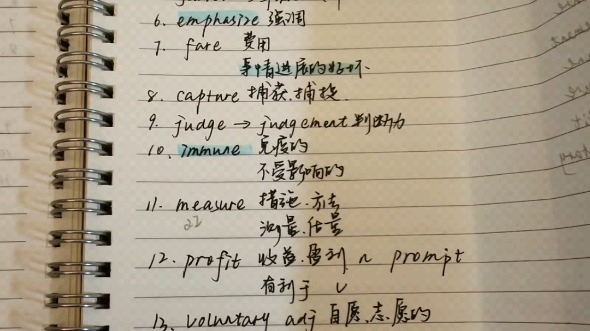 6. emphasize 强调
7. fare 费用
事情进展的好坏
8. capture 捕获.捕捉
9. judge → judgement 判断力
10. immune 免疫的
不受影响的
11. measure 措施.方法
22 测量.估量
12. profit 收益.盈利 n prompt
有利于 v
13. voluntary adj 自愿.志愿的